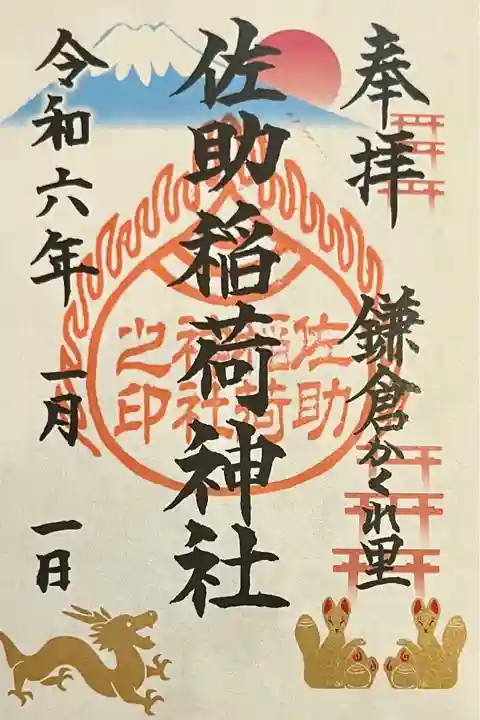 奉拝
鎌倉かくれ里
佐助稲荷神社
佐助
稲荷
神社
之印
令和六年 一月 一日